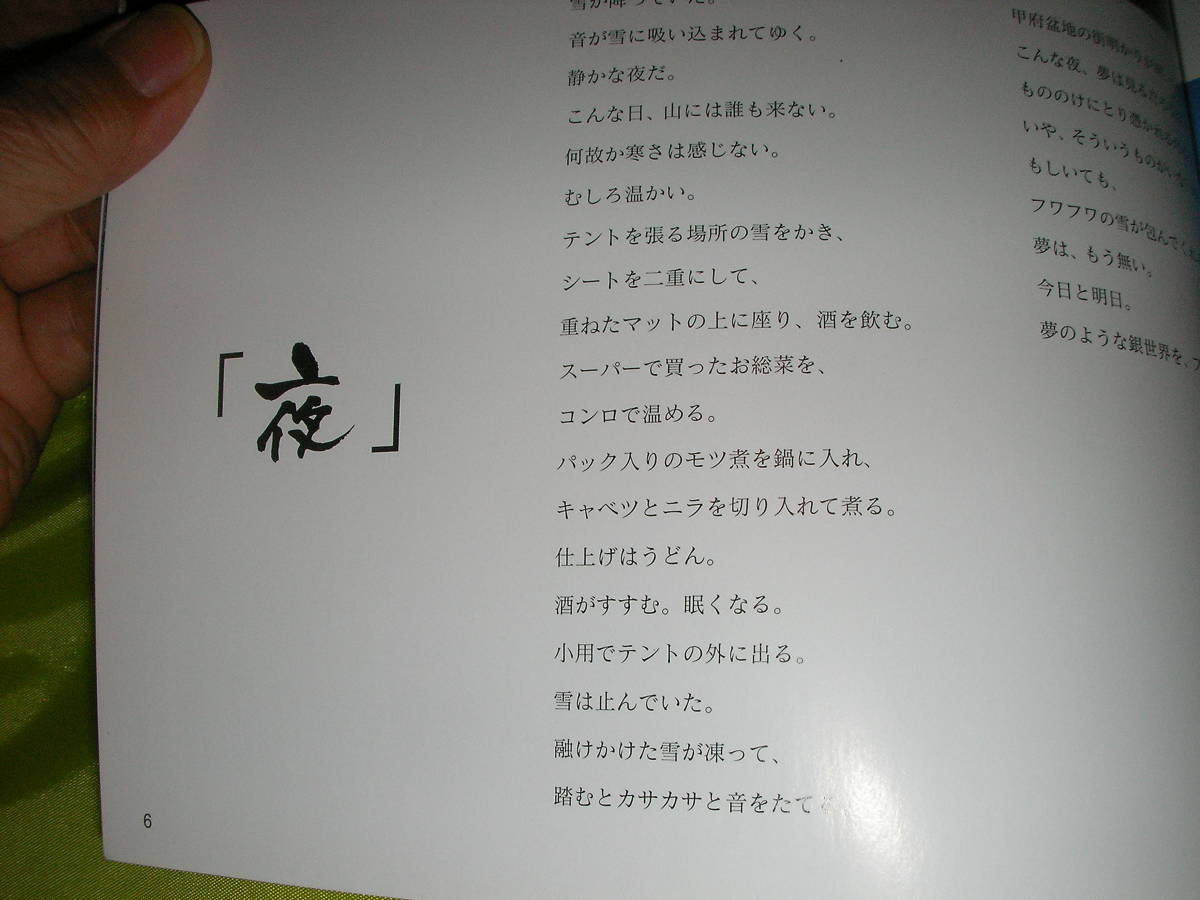 「夜」
雪が降っていた。
音が雪に吸い込まれてゆく。
静かな夜だ。
こんな日、山には誰も来ない。
何故か寒さは感じない。
むしろ温かい。
テントを張る場所の雪をかき、
シートを二重にして、
重ねたマットの上に座り、酒を飲む。
スーパーで買ったお総菜を、
コンロで温める。
パック入りのモツ煮を鍋に入れ、
キャベツとニラを切り入れて煮る。
仕上げはうどん。
酒がすすむ。眠くなる。
小用でテントの外に出る。
雪は止んでいた。
融けかけた雪が凍って、
踏むとカサカサと音をたてる
甲府盆地の街明かりが
こんな夜、夢は見るだろ
もののけにとり憑かれ
いや、そういうものがい
もしいても、
フワフワの雪が包んでくれ
夢は、もう無い。
今日と明日。
夢のような銀世界を、
6